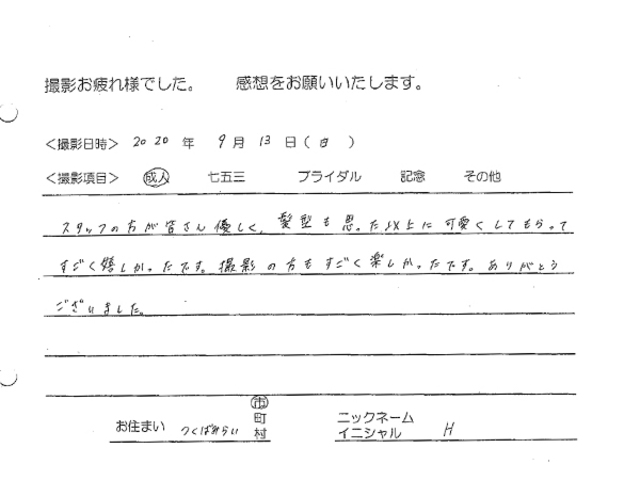 撮影お疲れ様でした。 感想をお願いいたします。
＜撮影日時＞ 2020 年 9 月 13 日（日）
＜撮影項目＞ 成人 七五三 ブライダル 記念 その他
スタッフの方が皆さん優しく、髪型も思った以上に可愛くしてもらって
すごく嬉しかったです。撮影の方もすごく楽しかったです。ありがとう
ございました。
お住まい つくばみらい 市 町 村
ニックネーム イニシャル H